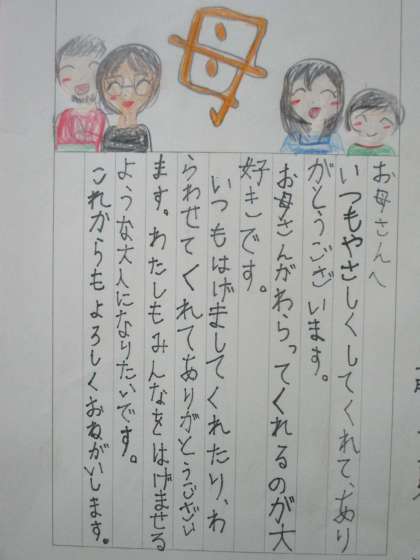 母
お母さんへ
いつもやさしくしてくれて、あり
がとうございます。
お母さんがわらってくれるのが大
好きです。
いつもはげましてくれたり、わ
らわせてくれてありがとうござい
ます。わたしもみんなをはげませる
ような大人になりたいです。
これからもよろしくおねがいします。